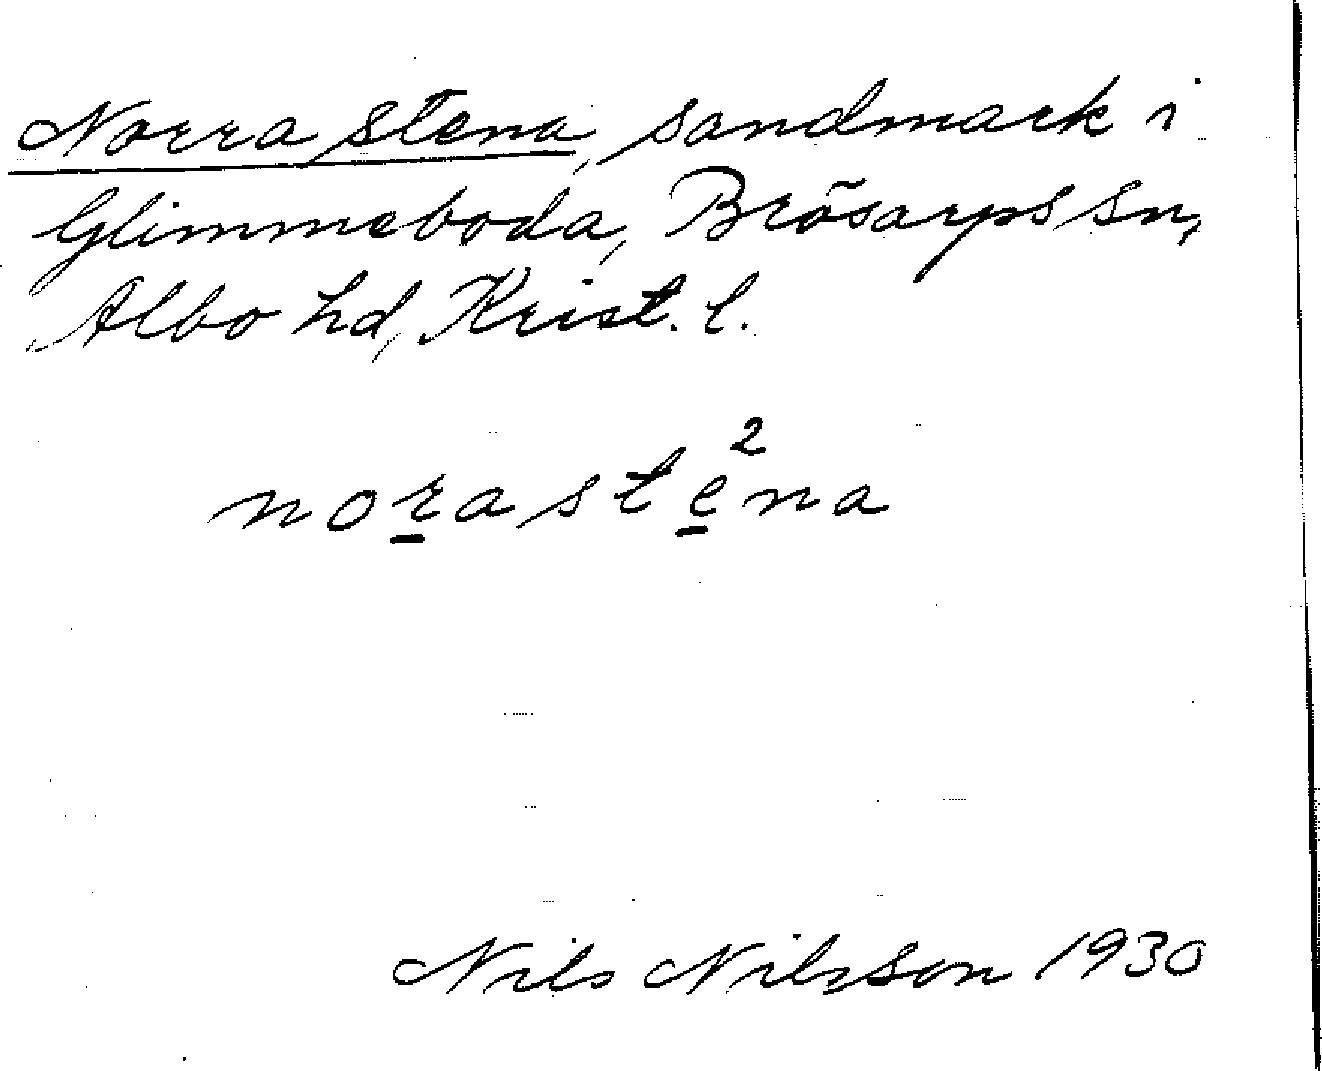 Norra stena, sandmark i
Glimmeboda, Brösarps sn,
Albo hd, Krist. l.
noraste²na
Nils Nilsson 1930